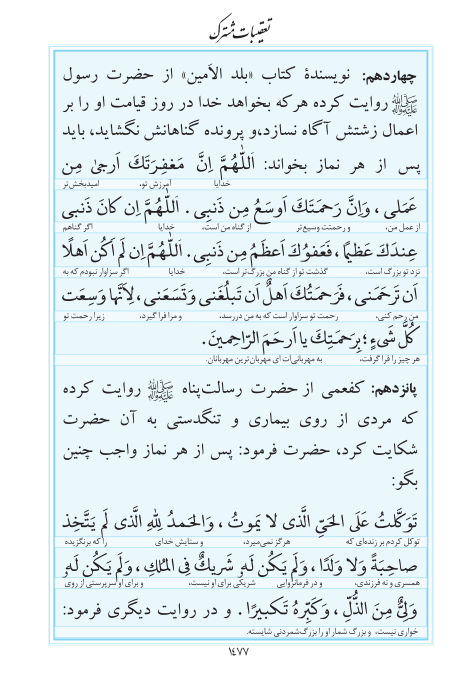 تعقیبات مشترک
چهاردهم: نویسندهٔ کتاب «بلد الأمین» از حضرت رسول
ﷺ روایت کرده هرکه بخواهد خدا در روز قیامت او را بر
اعمال زشتش آگاه نسازد، و پرونده گناهانش نگشاید، باید
پس از هر نماز بخواند: اَللّٰهُمَّ اِنَّ مَغفِرَتَكَ اَرجىٰ مِن
خدایا آمرزش تو، امیدبخش‌تر
عَمَلى ، وَاِنَّ رَحمَتَكَ اَوسَعُ مِن ذَنبى . اَللّٰهُمَّ اِن كانَ ذَنبى
از عمل من، و رحمتت وسیع‌تر از گناه من است، خدایا اگر گناهم
عِندَكَ عَظيمًا ، فَعَفوُكَ اَعظَمُ مِن ذَنبى . اَللّٰهُمَّ اِن لَم اَكُن اَهلًا
نزد تو بزرگ است، گذشت تو از گناه من بزرگ‌تر است، خدایا اگر سزاوار نبودم که به
اَن تَرحَمَنى ، فَرَحمَتُكَ اَهلٌ اَن تَبلُغَنى وَتَسَعَنى ، لِاَنَّها وَسِعَت
من رحم کنی، رحمت تو سزاوار است که به من دررسد، و مرا فرا گیرد، زیرا رحمت تو
كُلَّ شَىءٍ ؛ بِرَحمَتِكَ يا اَرحَمَ الرّاحِمينَ.
هر چیز را فرا گرفت، به مهربانی‌ات ای مهربان‌ترین مهربانان.
پانزدهم: کفعمی از حضرت رسالت‌پناه ﷺ روایت کرده
که مردی از روی بیماری و تنگدستی به آن حضرت
شکایت کرد، حضرت فرمود: پس از هر نماز واجب چنین
بگو:
تَوَكَّلتُ عَلَى الحَىِّ الَّذى لا يَموتُ ، وَالحَمدُ لِلّٰهِ الَّذى لَم يَتَّخِذ
توکل کردم بر زنده‌ای که هرگز نمی‌میرد، و ستایش خدای را که برنگزیده
صاحِبَةً وَلا وَلَدًا ، وَلَم يَكُن لَهٗ شَريكٌ فِى المُلكِ ، وَلَم يَكُن لَهٗ
همسری و نه فرزندی، و در فرمانروایی شریکی برای او نیست، و برای او سرپرستی از روی
وَلِىٌّ مِنَ الذُّلِّ ، وَكَبِّرهُ تَكبيرًا . و در روایت دیگری فرمود:
خواری نیست، و بزرگ شمار او را بزرگ‌شمردنی شایسته.
۱۴۷۷